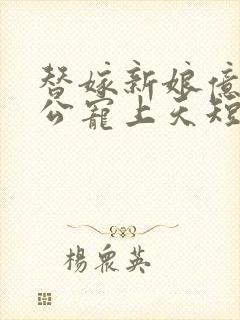 替嫁新娘億
公寵上天短
楊眾英